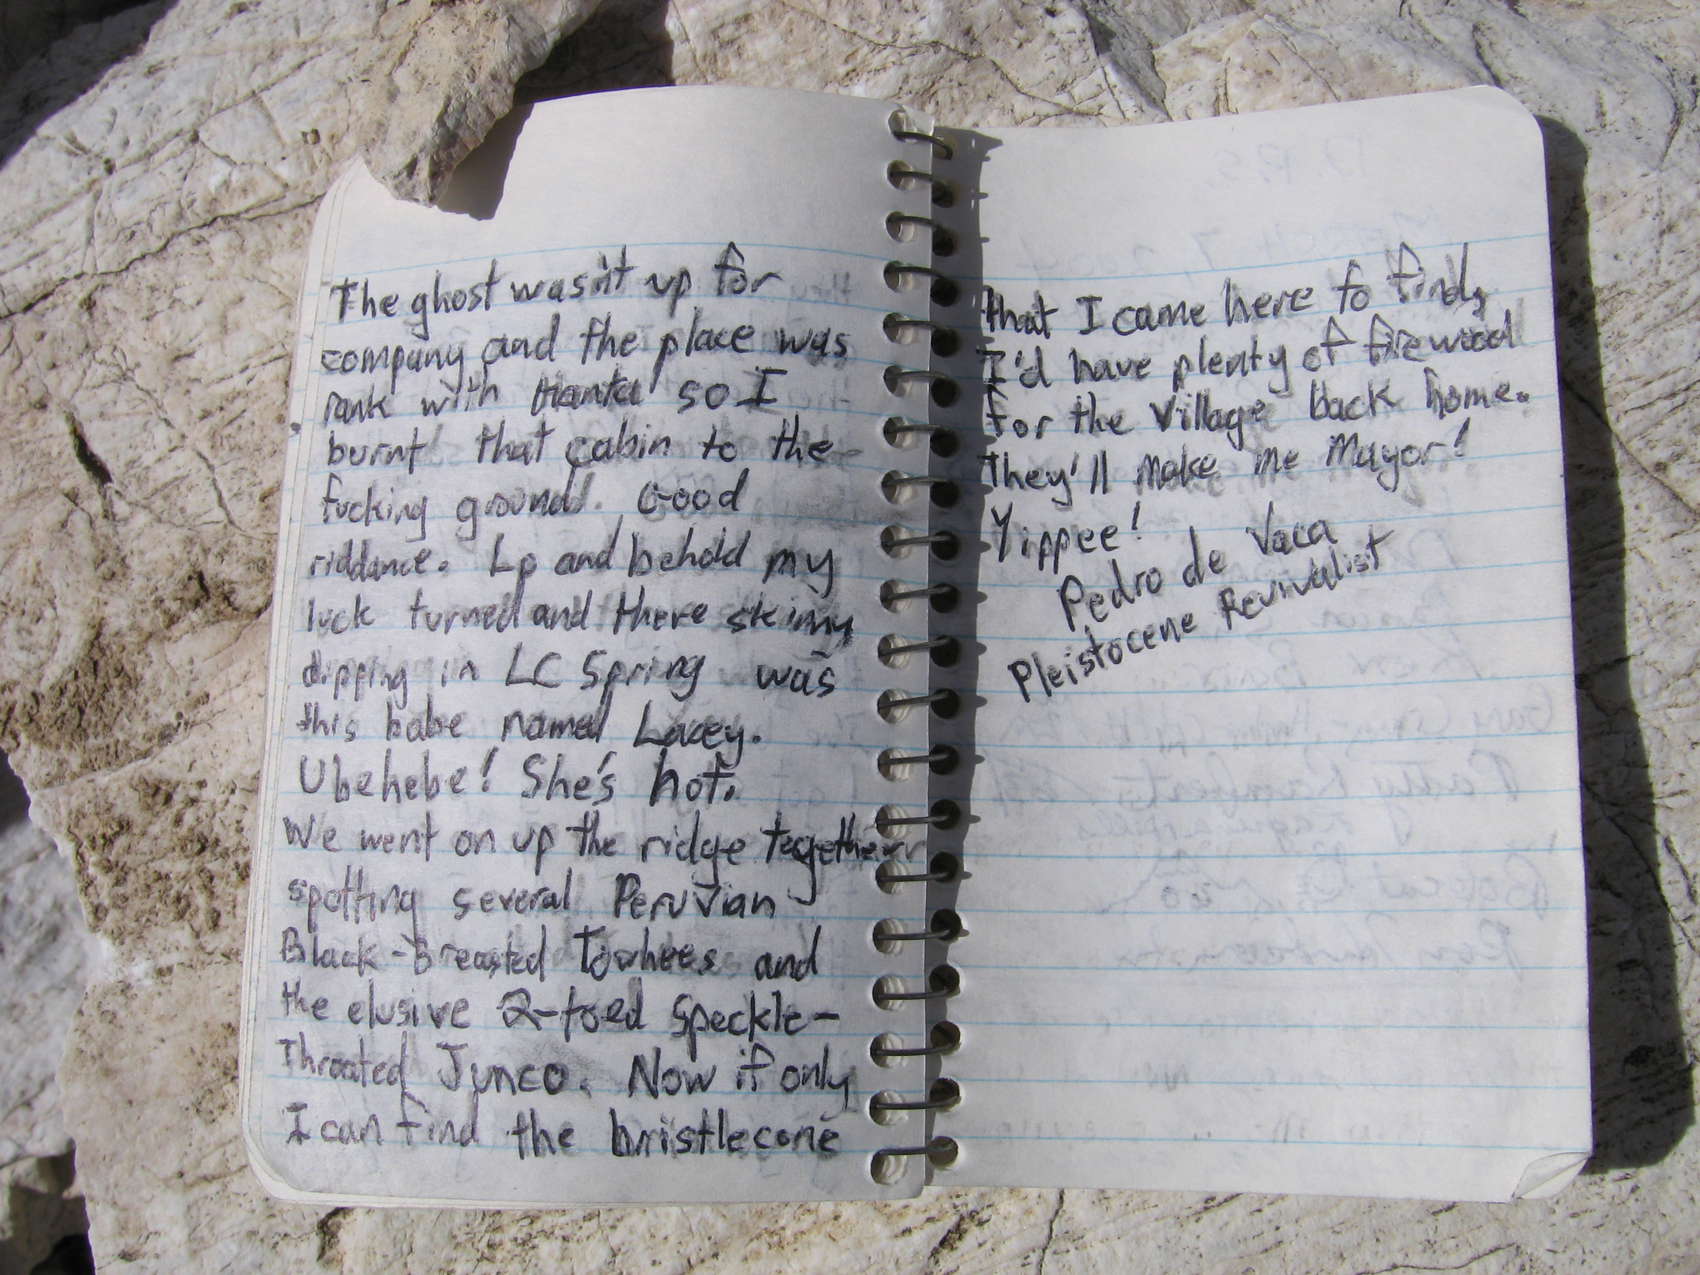 The ghost wasn't up for
company and the place was
rank with Hanta so I
burnt that cabin to the
fucking ground. Good
riddance. Lo and behold my
luck turned and there skinny
dipping in LC Spring was
this babe named Lacey.
Ubehebe! She's hot.
We went on up the ridge together
spotting several Peruvian
Black-Breasted Towhees and
the elusive 2-toed Speckle-
Throated Junco. Now if only
I can find the bristlecone
that I came here to find,
I'd have plenty of firewood
for the Village back home.
They'll make me Mayor!
Yippee!
Pedro de Vaca
Pleistocene Revivalist